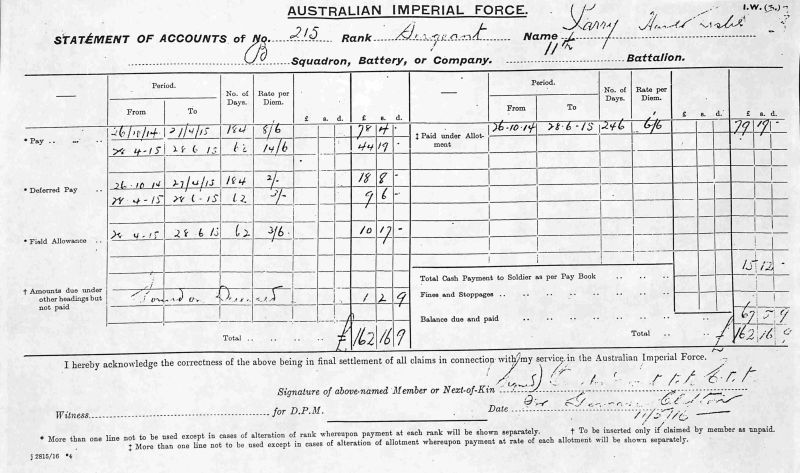 AUSTRALIAN IMPERIAL FORCE.
I.W. (3.)
STATEMENT OF ACCOUNTS of No. 215 Rank Sergeant Name Larry
B Squadron, Battery, or Company. 11th Battalion.
Period. No. of Days. Rate per Diem. £ s. d. £ s. d. Period. No. of Days. Rate per Diem. £ s. d. £ s. d.
From To From To
* Pay .. .. .. 26/10/14 27/4/15 184 8/6 78 4 - ‡ Paid under Allotment 26.10.14 28.6.15 246 6/6 79 19 -
28.4.15 28.6.15 62 14/6 44 19 -
* Deferred Pay .. 26.10.14 27/4/15 184 2/- 18 8 -
28.4.15 28.6.15 62 3/- 9 6 -
* Field Allowance .. 28.4.15 28.6.15 62 3/6 10 17 -
Total Cash Payment to Soldier as per Pay Book .. .. .. 15 12 -
† Amounts due under other headings but not paid Found on Deceased 1 2 9
Fines and Stoppages .. .. .. .. .. ..
Balance due and paid .. .. .. .. 67 5 9
Total .. .. .. £ 162 16 9 Total .. .. £ 162 16 9
I hereby acknowledge the correctness of the above being in final settlement of all claims in connection with my service in the Australian Imperial Force.
Signature of above-named Member or Next-of-Kin (signed)
Witness for D.P.M. Date 11/5/16
* More than one line not to be used except in cases of alteration of rank whereupon payment at each rank will be shown separately. † To be inserted only if claimed by member as unpaid.
‡ More than one line not to be used except in cases of alteration of allotment whereupon payment at rate of each allotment will be shown separately.
‡ 2815/16 *4